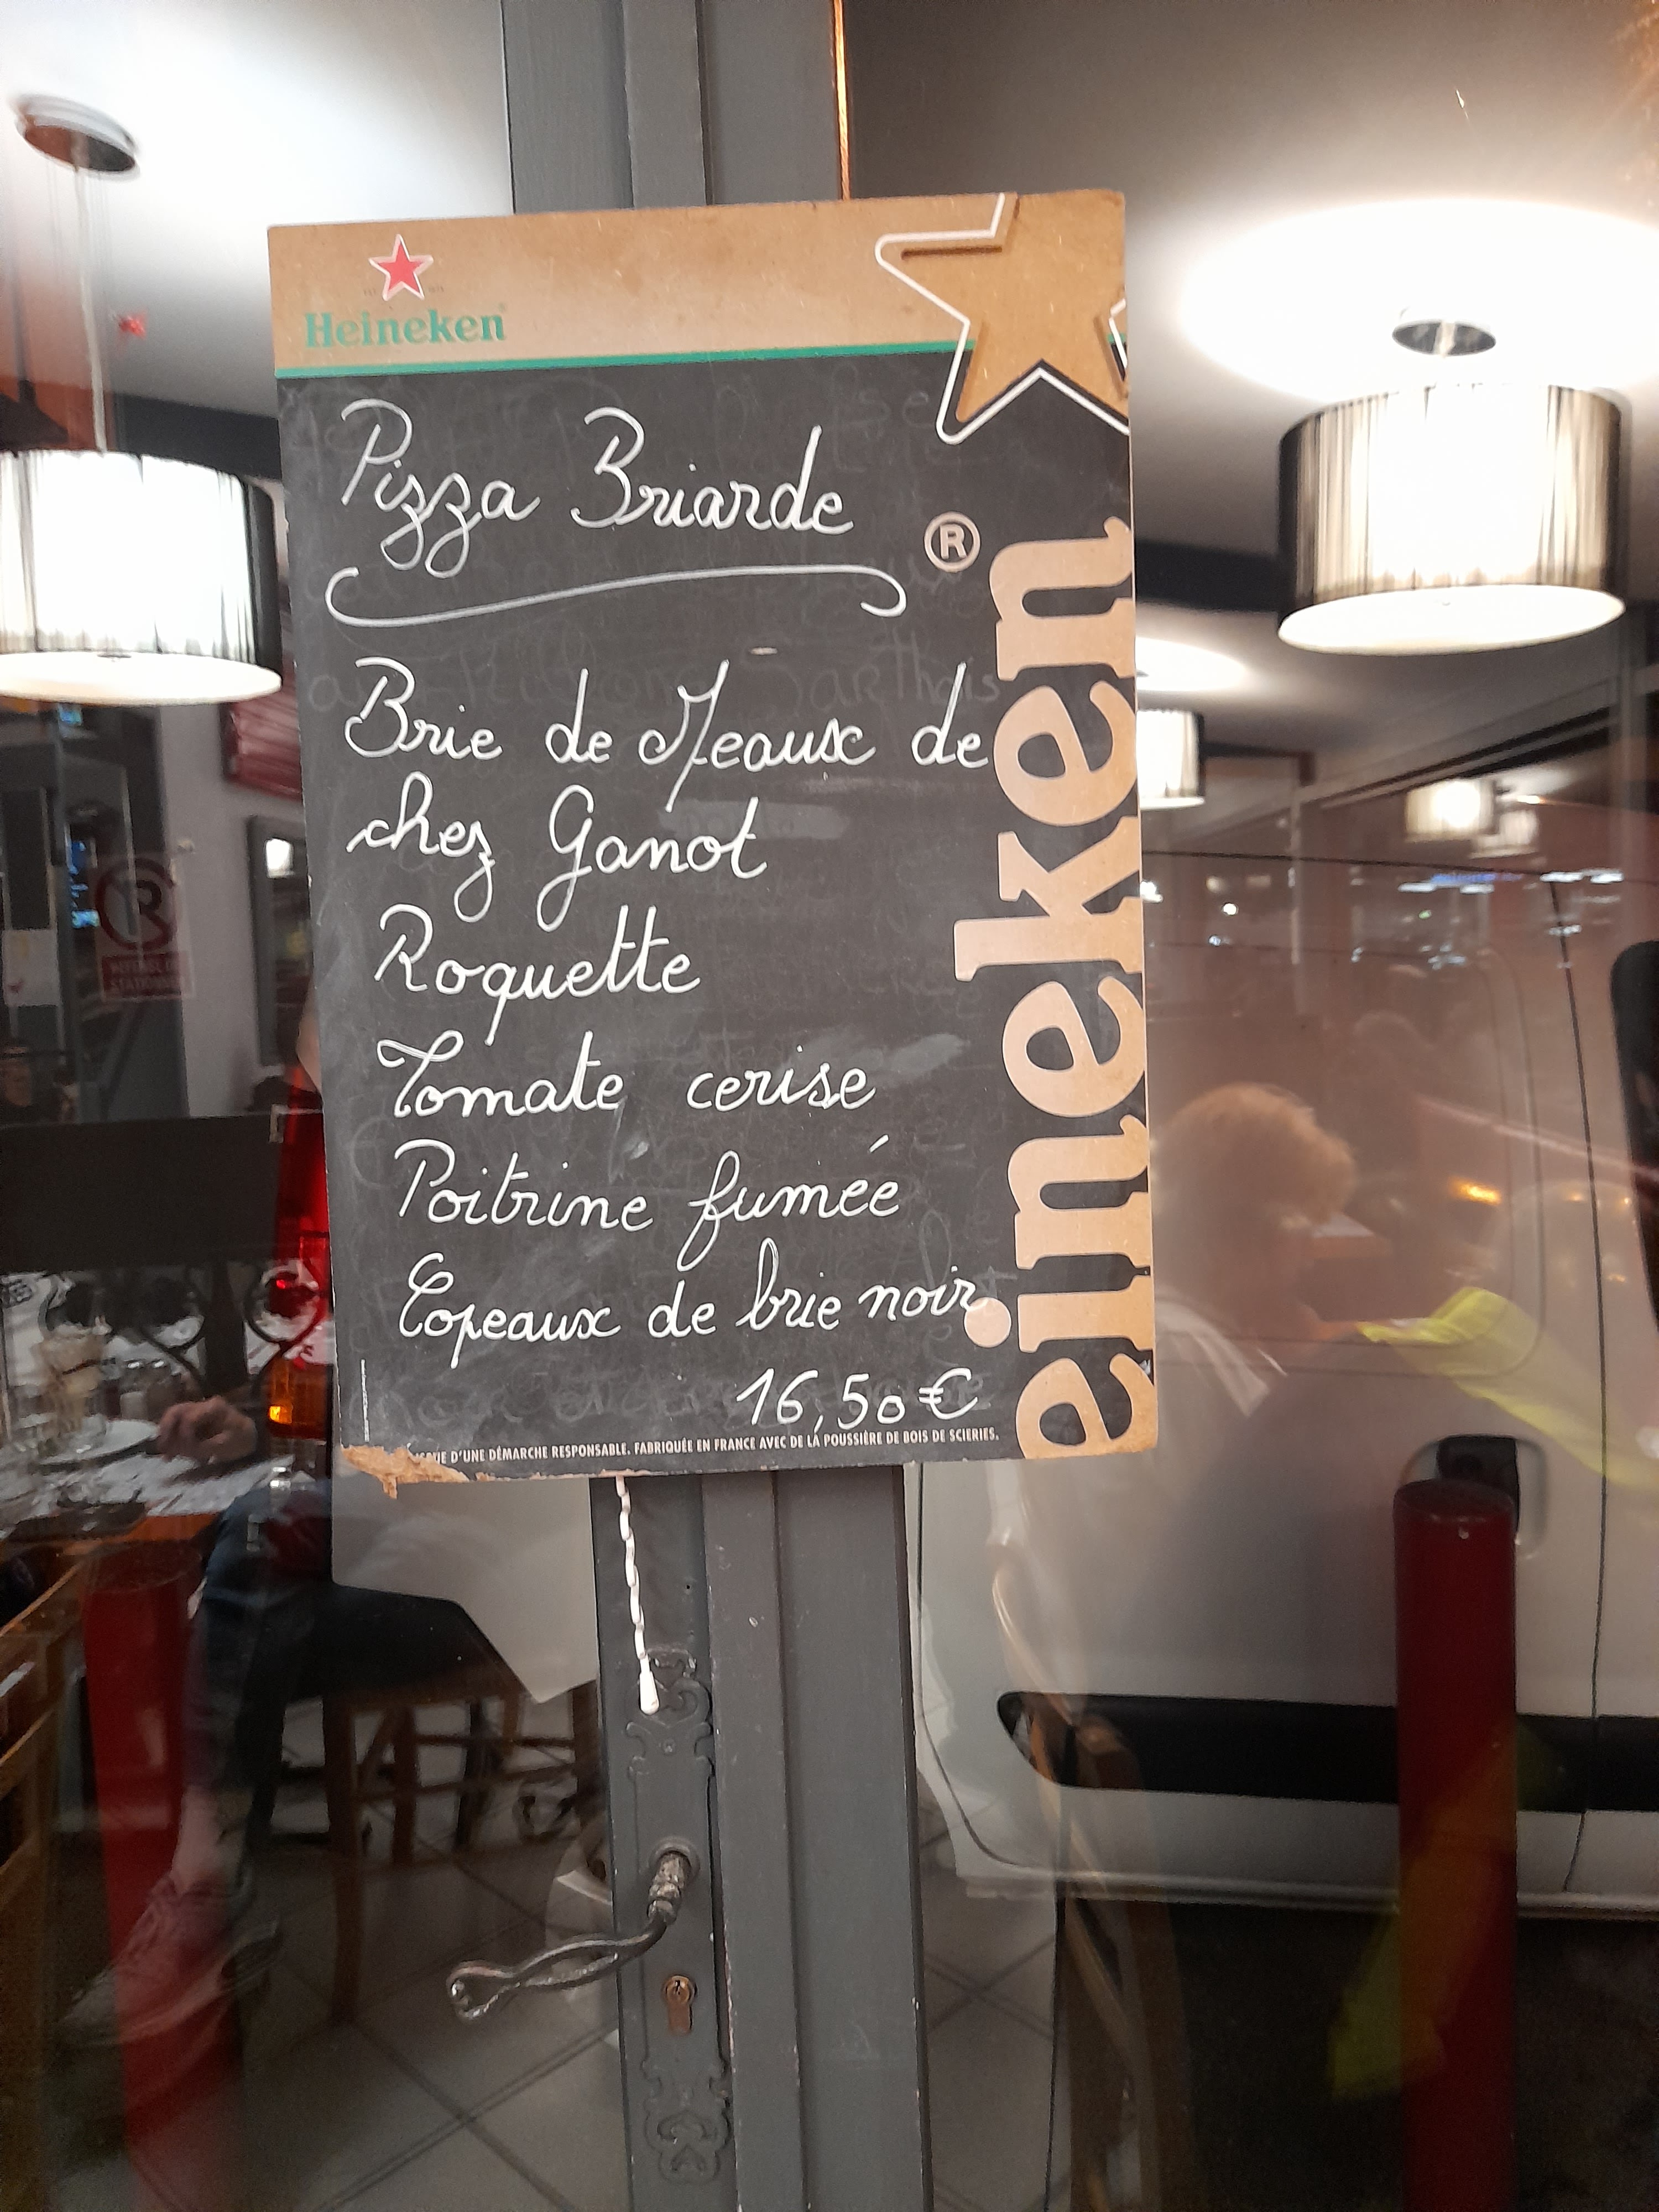 Heineken
Pizza Briarde
Brie de Meaux de
chez Ganot
Roquette
Tomate cerise
Poitrine fumée
Copeaux de brie noir
16,50 €
D'UNE DÉMARCHE RESPONSABLE. FABRIQUÉE EN FRANCE AVEC DE LA POUSSIÈRE DE BOIS DE SCIERIES.
eineken®
STATIONNER